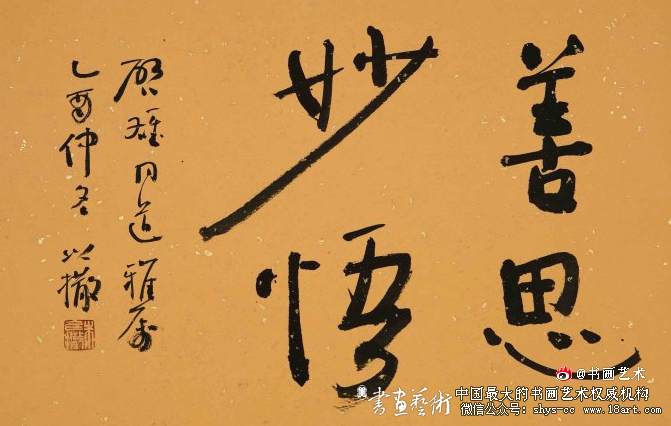 善思
妙悟
启雄同道雅属
乙酉仲冬 以撒
@书画艺术
書画藝術
中国最大的书画艺术权威机构
微信公众号：shys-cc www.18art.com